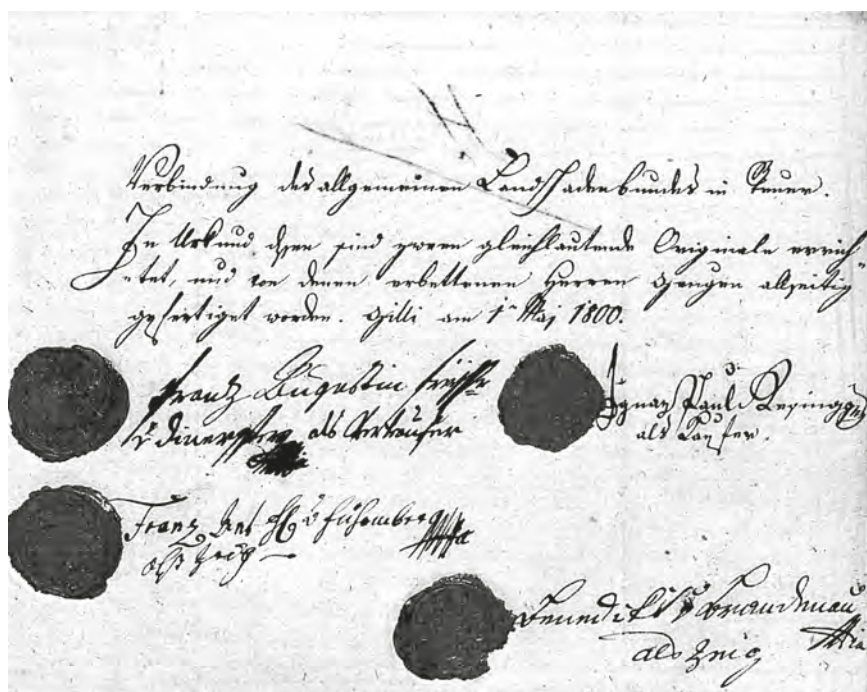 Verbindung des allgemeinen Landschadenbundes in Steuer.
In Urkund dessen sind zween gleichlautende Originale errich=
=tet, und von denen erbettenen Herren Zeugen allseitig
gefertiget worden. Zilli am 1ten Maj 1800.
Franz Augustin
als Verkaufer
Ignaz Paul Resingg
als Kaufer.
Franz Ant v Führnberg
als Zeug
Benedikt v Brandenau
als Zeug